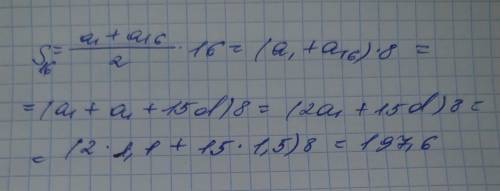 S₁₆ = (a₁ + a₁₆)/2 · 16 = (a₁ + a₁₆) · 8 =
= (a₁ + a₁ + 15d) 8 = (2a₁ + 15d) 8 =
= (2 · 1,1 + 15 · 1,5) 8 = 197,6